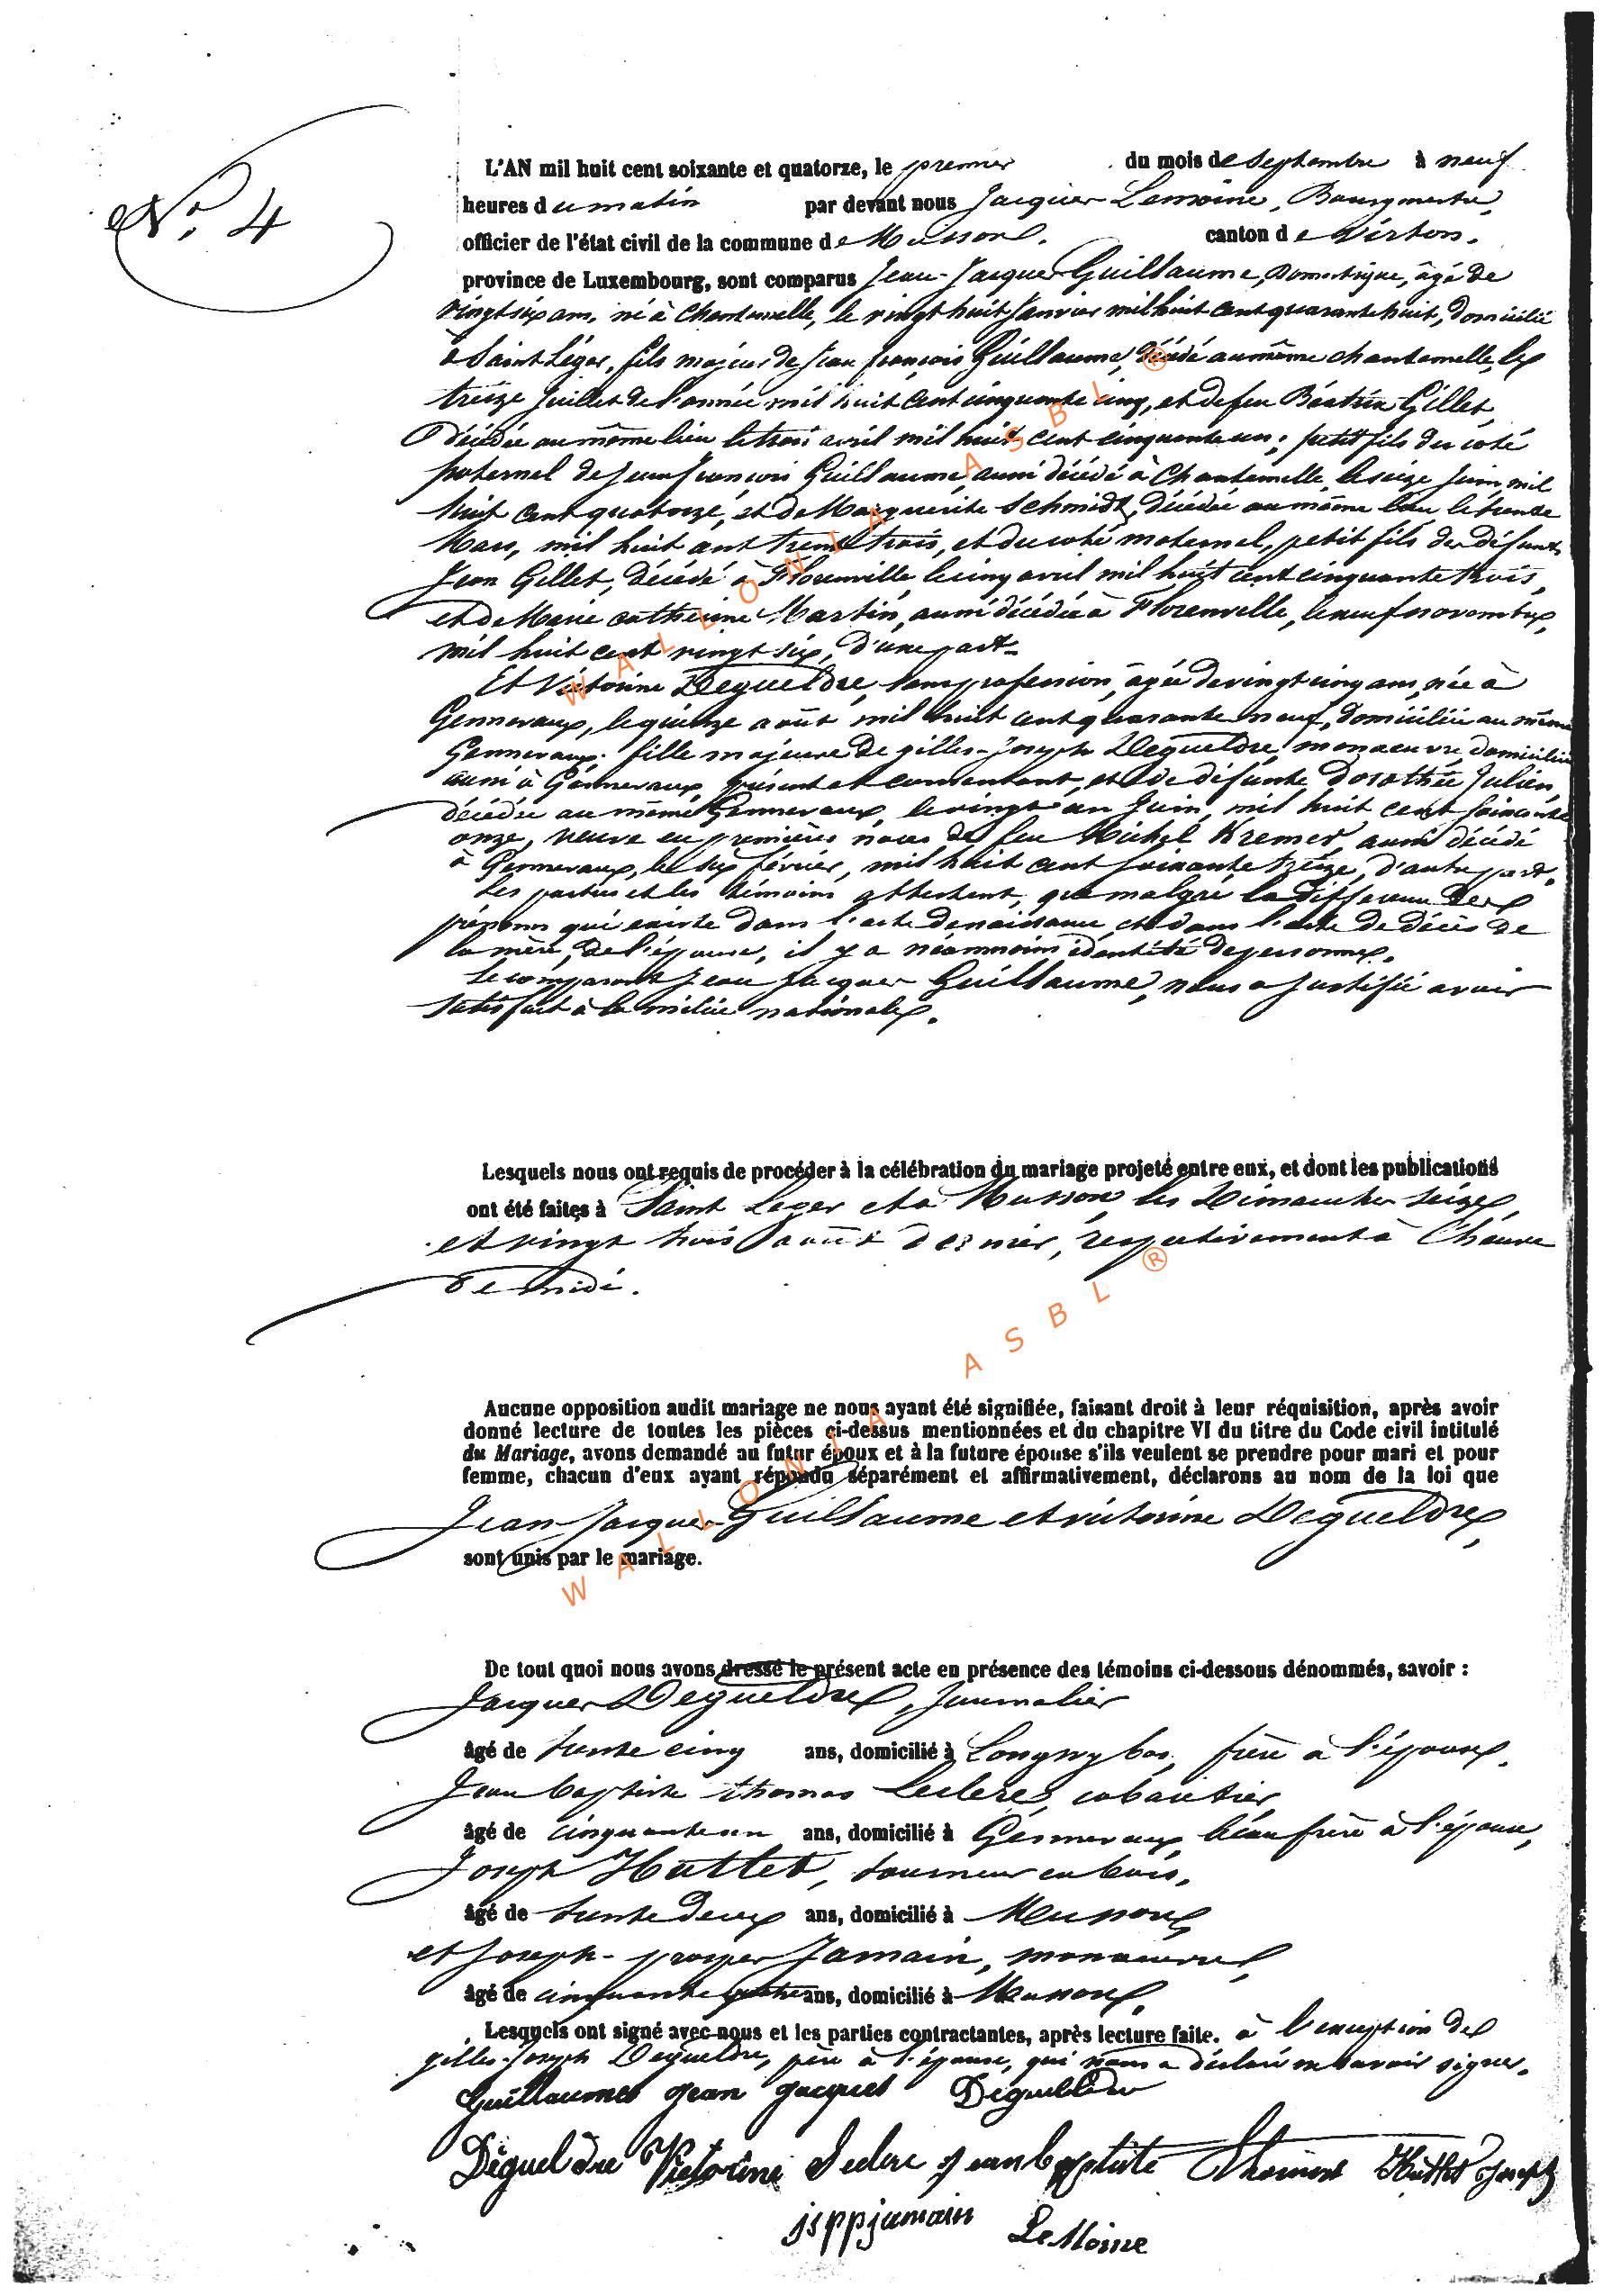 N.º 4
L'AN mil huit cent soixante et quatorze, le premier du mois de Septembre à neuf
heures du matin par devant nous Jacques Lemoine, Bourgmestre,
officier de l'état civil de la commune de Musson. canton de Virton.
province de Luxembourg, sont comparus Jean-Jacques Guillaume, Domestique, âgé de
vingt six ans, né à Chantemelle, le vingt huit Janvier mil huit cent quarante huit, domicilié
à Saint Léger, fils majeur de Jean françois Guillaume, décédé au même chantemelle, le
treize Juillet de l'année mil huit cent cinquante cinq, et de feu Béatrix Gillet,
décédée au même lieu le trois avril mil huit cent cinquante un; petit fils du coté
paternel de Jean françois Guillaume, aussi décédé à Chantemelle, le seize Juin mil
huit cent quatorze, et de Marguerite Schmidt, décédée au même lieu le trente
Mars, mil huit cent trente trois, et du coté maternel, petit fils des défunts
Jean Gillet, décédé à Florenville le cinq avril mil huit cent cinquante trois,
et de Marie catherine Martin, aussi décédée à Florenville, le neuf novembre,
mil huit cent vingt six, d'une part.
Et Victorine Degueldre, sans profession, âgée de vingt cinq ans, née à
Gennevaux, le quinze août mil huit cent quarante neuf, domiciliée au même
Gennevaux, fille majeure de gilles-Joseph Degueldre, manoeuvre, domicilié
aussi à Gennevaux, présent et consentant, et de défunte Dorothée Julien,
décédée au même Gennevaux, le vingt un Juin, mil huit cent soixante
onze, veuve en premières noces de feu Michel Kremer, aussi décédé
à Gennevaux, le six février, mil huit cent soixante treize, d'autre part.
Les parties et les témoins attestent, que malgré la différence de
prénoms qui existe dans l'acte de naissance et dans l'acte de décès de
la mère, de l'épouse, il y a néanmoins identité de personne.
Le comparant Jean Jacques Guillaume, nous a justifié avoir
satisfait à la milice nationale.
Lesquels nous ont requis de procéder à la célébration du mariage projeté entre eux, et dont les publications
ont été faites à Saint Leger et à Musson, les Dimanches seize,
et vingt trois août dernier, respectivement à l'heure
de midi.
Aucune opposition audit mariage ne nous ayant été signifiée, faisant droit à leur réquisition, après avoir
donné lecture de toutes les pièces ci-dessus mentionnées et du chapitre VI du titre du Code civil intitulé
du Mariage, avons demandé au futur époux et à la future épouse s'ils veulent se prendre pour mari et pour
femme, chacun d'eux ayant répondu séparément et affirmativement, déclarons au nom de la loi que
Jean-Jacques Guillaume et victorine Degueldre,
sont unis par le mariage.
De tout quoi nous avons dressé le présent acte en présence des témoins ci-dessous dénommés, savoir :
Jacques Degueldre, Journalier
âgé de trente cinq ans, domicilié à Longwy bas, frère à l'épouse.
Jean baptiste thomas Leclere, cabaretier,
âgé de cinquante un ans, domicilié à Gennevaux, beau frère à l'épouse,
Joseph Huttet, tourneur en bois,
âgé de trente Deux ans, domicilié à Musson,
et Joseph-prosper Jamain, manoeuvre,
âgé de cinquante quatre ans, domicilié à Musson.
Lesquels ont signé avec nous et les parties contractantes, après lecture faite. à l'exception de
gilles-Joseph Degueldre, père à l'épouse, qui nous a déclaré ne savoir signer.
Guillaumes Jean Jacques Degueldre
Dégueldre Victorine Leclere Jean baptiste Thomas Huttet Joseph
jsppjamain LeMoine
WALLONIA ASBL ®
WALLONIA ASBL ®